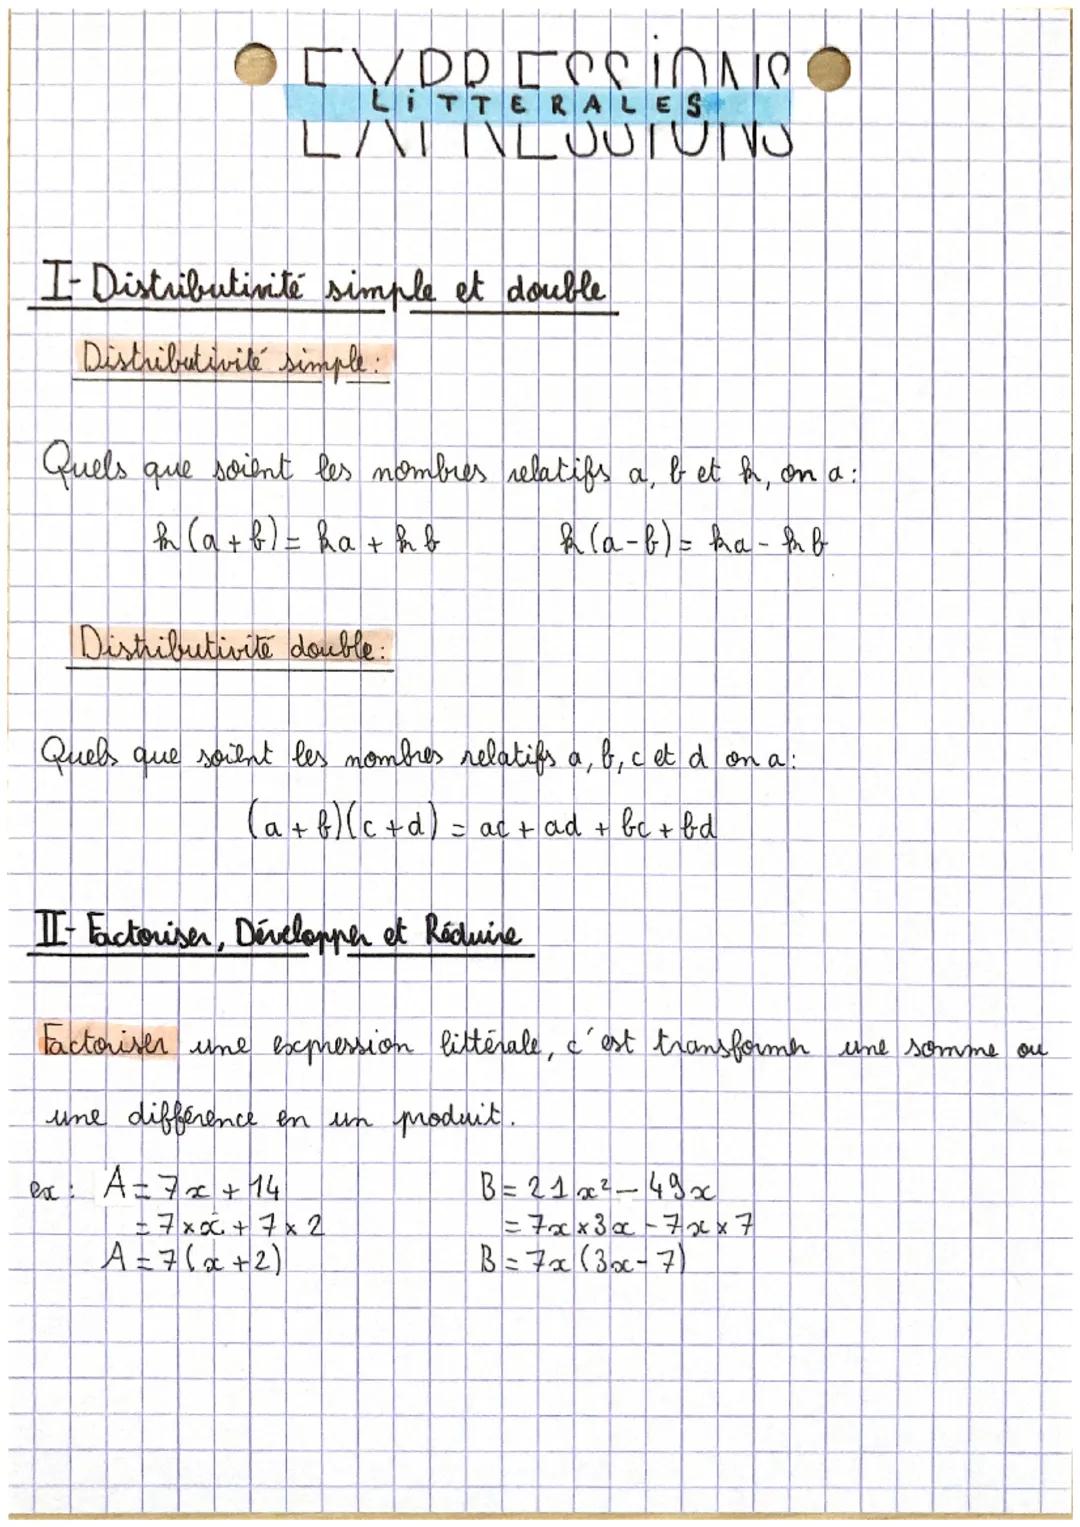 EXPRESSIONS
LiTTERALES
I- Distributivité simple et double
Distributivité simple:
Quels que soient les nombres relatifs a, b et k, on a:
k(a+b) = ka + kb k(a-b) = ka - kb
Distributivité double:
Quels que soient les nombres relatifs a, b, c et d on a:
(a+b)(c+d) = ac + ad + bc + bd
II- Factoriser, Développer et Réduire
Factoriser une expression littérale, c'est transformer une somme ou
une différence en un produit.
ex: A = 7x + 14 B = 21x² - 49x
= 7×x + 7×2 = 7x×3x - 7x×7
A = 7(x+2) B = 7x(3x-7)